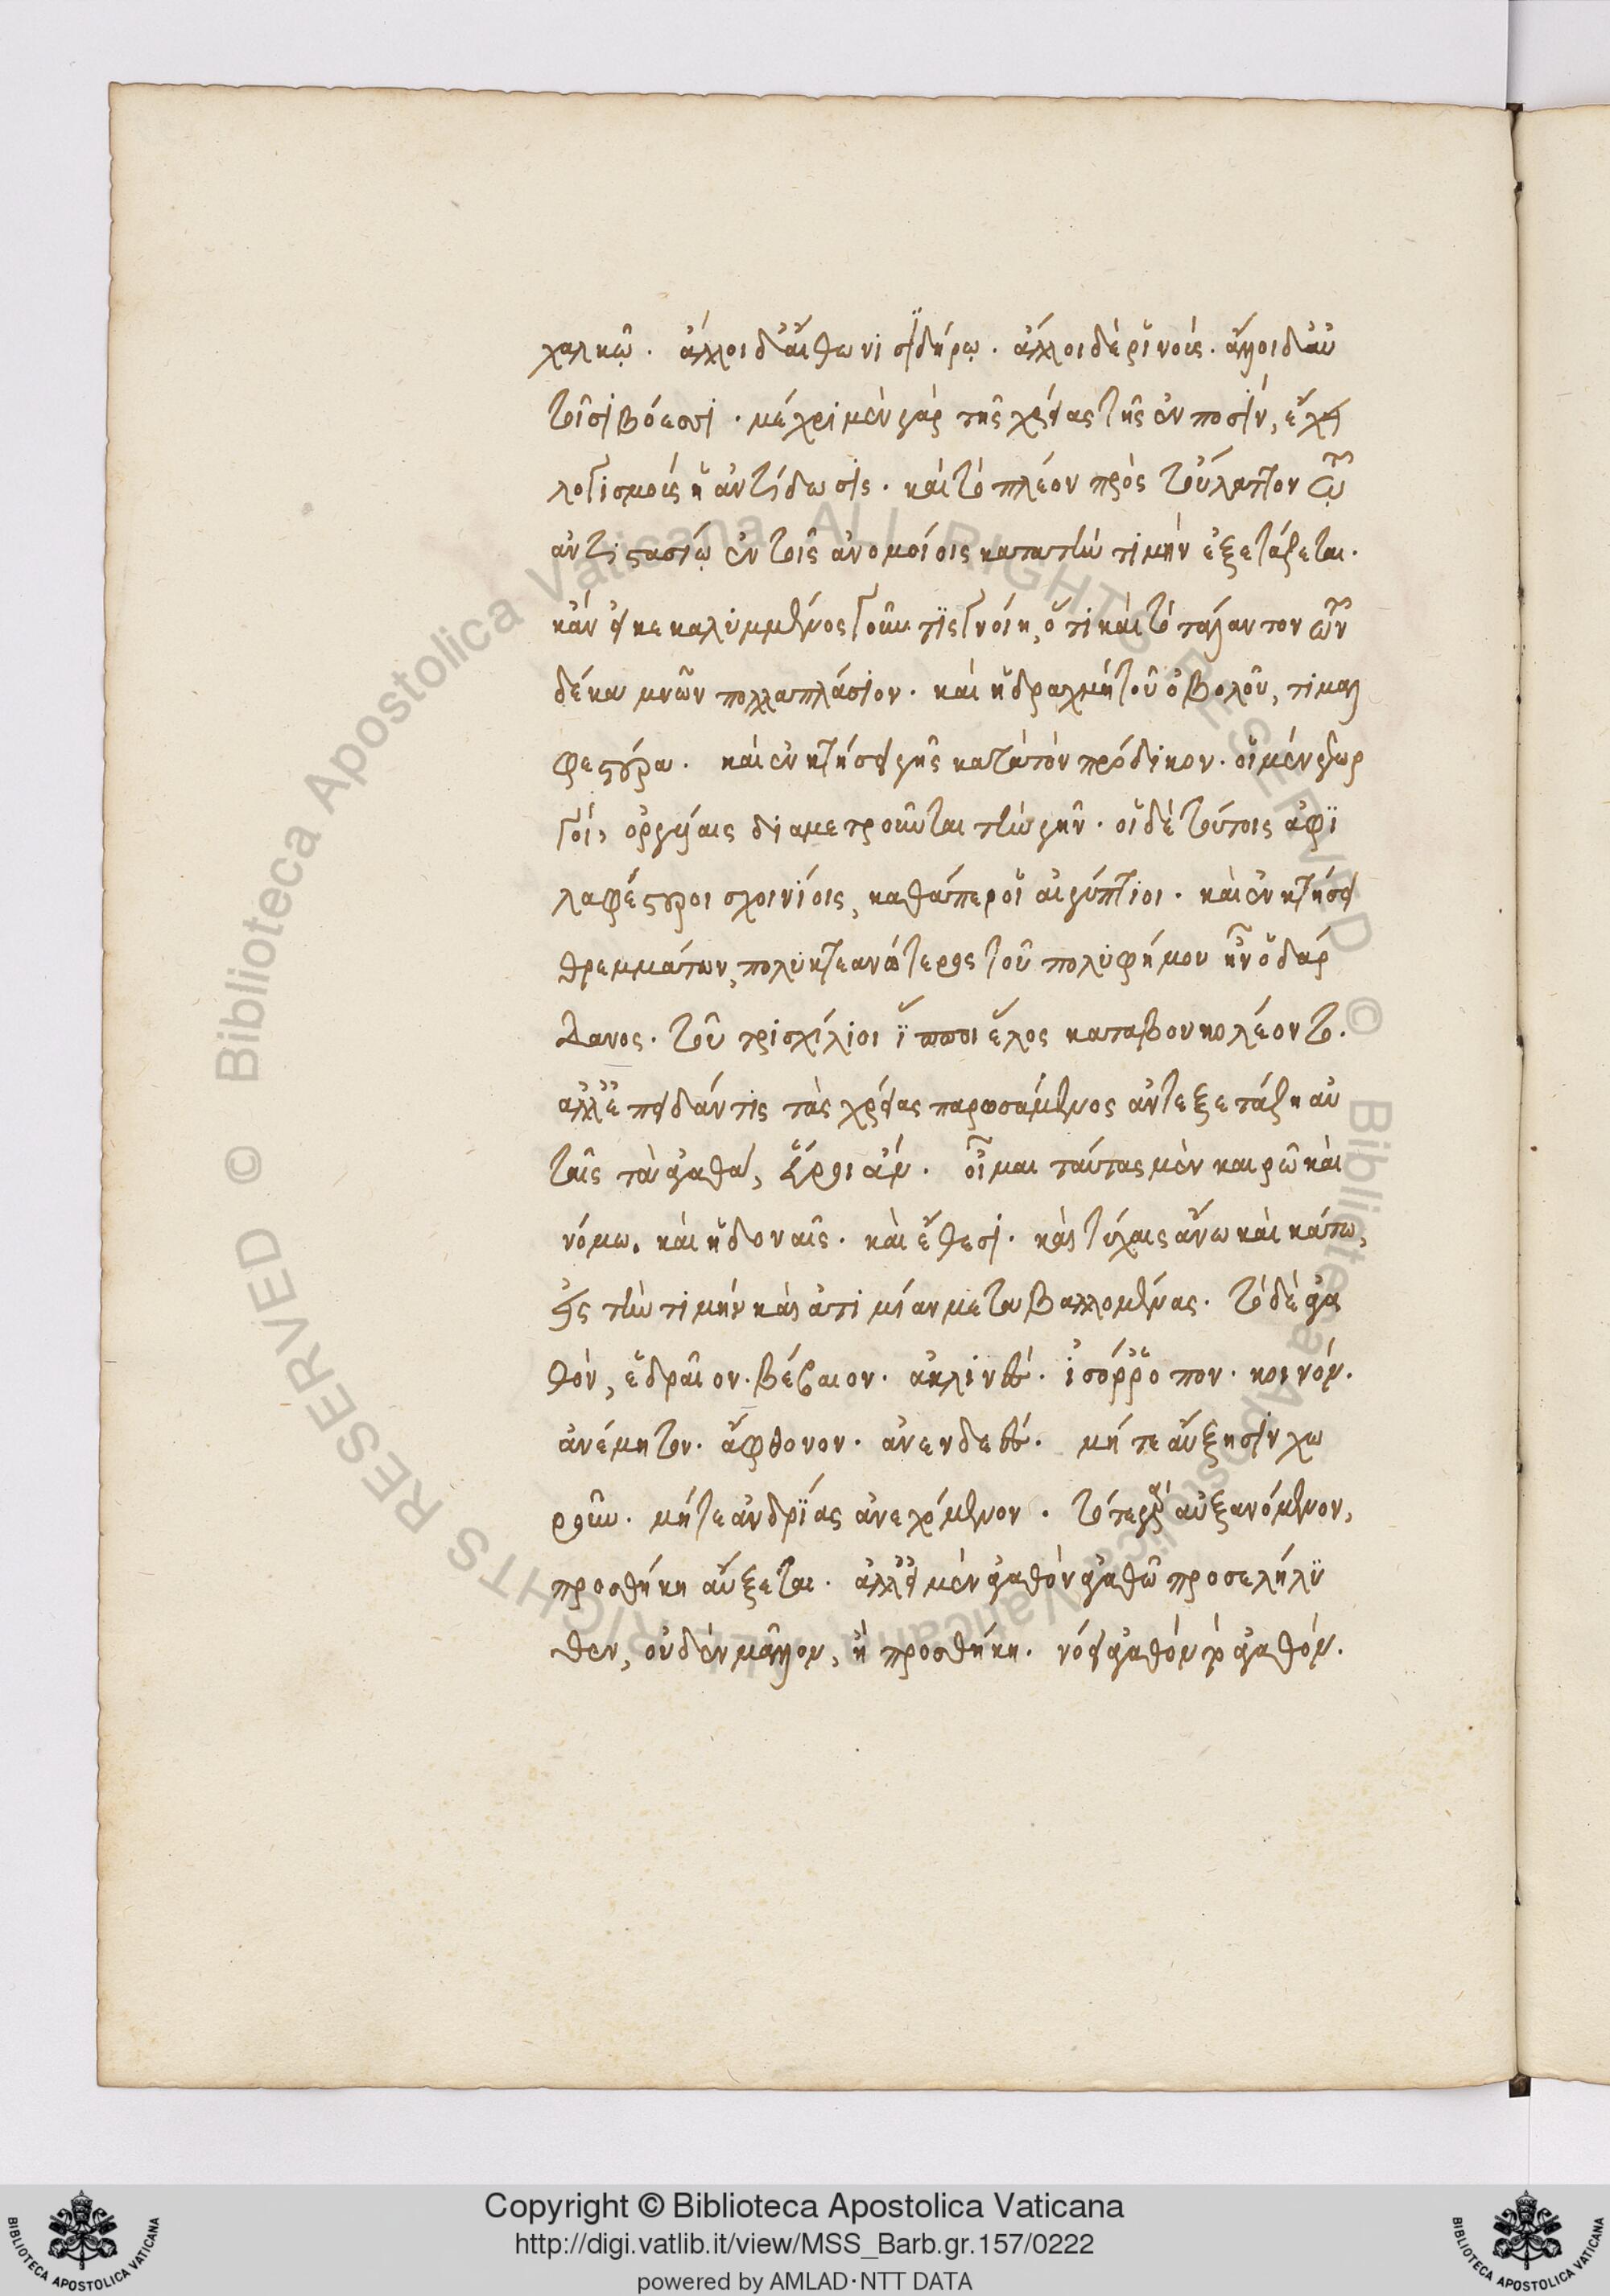 χαλκῷ. ἄλλοι δ' αἴθωνι σϊδήρῳ. ἄλλοι δὲ ῥινοῖς. ἄλλοι δ' αὐ
τοῖσι βόεσσι. μέχρι μὲν γὰρ τῆς χρείας τῆς ἐν ποσὶν, ἔχει
λογισμοὺς ἡ ἀντίδωσις. καὶ τὸ πλέον πρὸς τοὔλαττον τῷ
ἀντιστασίῳ ἐν τοῖς ἀνομοίοις κατὰ τὴν τιμὴν ἐξετάζεται.
κἂν εἰ κεκαλυμμένος γοῦν τίς γνοίη, ὅτι καὶ τὸ τάλαντον ὢν
δέκα μνῶν πολλαπλάσιον. καὶ ἡ δραχμὴ τοῦ ὀβολοῦ, τιμαλ
φεστέρα. καὶ ἐν κτήσει γῆς κατὰ τὸν πρόδικον. οἱ μὲν γεωρ
γοὶ, ὀργυίαις διαμετροῦνται τὴν γῆν. οἱ δὲ τούτοις ἀφϊ
λαφέστεροι σχοινίοις, καθάπερ οἱ αἰγύπτιοι. καὶ ἐν κτήσει
θρεμμάτων, πολυκτεανώτερος τοῦ πολυφήμου ἦν ὁ δάρ
δανος. τοῦ τρισχίλιοι ἵπποι ἕλος καταβουκολέοντο.
ἀλλ' ἐπειδάν τις τὰς χρείας παρωσάμενος ἀντεξετάζῃ αὐ
ταῖς τἀγαθὰ, εὕροι ἄν. οἶμαι ταύτας μὲν καιρῷ καὶ
νόμῳ. καὶ ἡδοναῖς. καὶ ἔθεσι. καὶ τύχαις ἄνω καὶ κάτω,
ἐς τὴν τιμὴν καὶ ἀτιμίαν μεταβαλλομένας. τὸ δὲ ἀγα
θὸν, ἑδραῖον. βέβαιον. ἀκλινές. ἰσόρῤοπον. κοινόν.
ἀνέμητον. ἄφθονον. ἀνενδεές. μήτε αὔξησιν χω
ροῦν. μήτε ἀνδρΐας ἀνεχόμενον. τό τε γὰρ αὐξανόμενον,
προσθήκῃ αὔξεται. ἀλλ' εἰ μὲν ἀγαθὸν ἀγαθῷ προσελήλυ
θεν, οὐδὲν μᾶλλον, ἢ προσθήκη. τό γε ἀγαθὸν πρὸ ἀγαθόν.
Copyright © Biblioteca Apostolica Vaticana
http://digi.vatlib.it/view/MSS_Barb.gr.157/0222
powered by AMLAD·NTT DATA